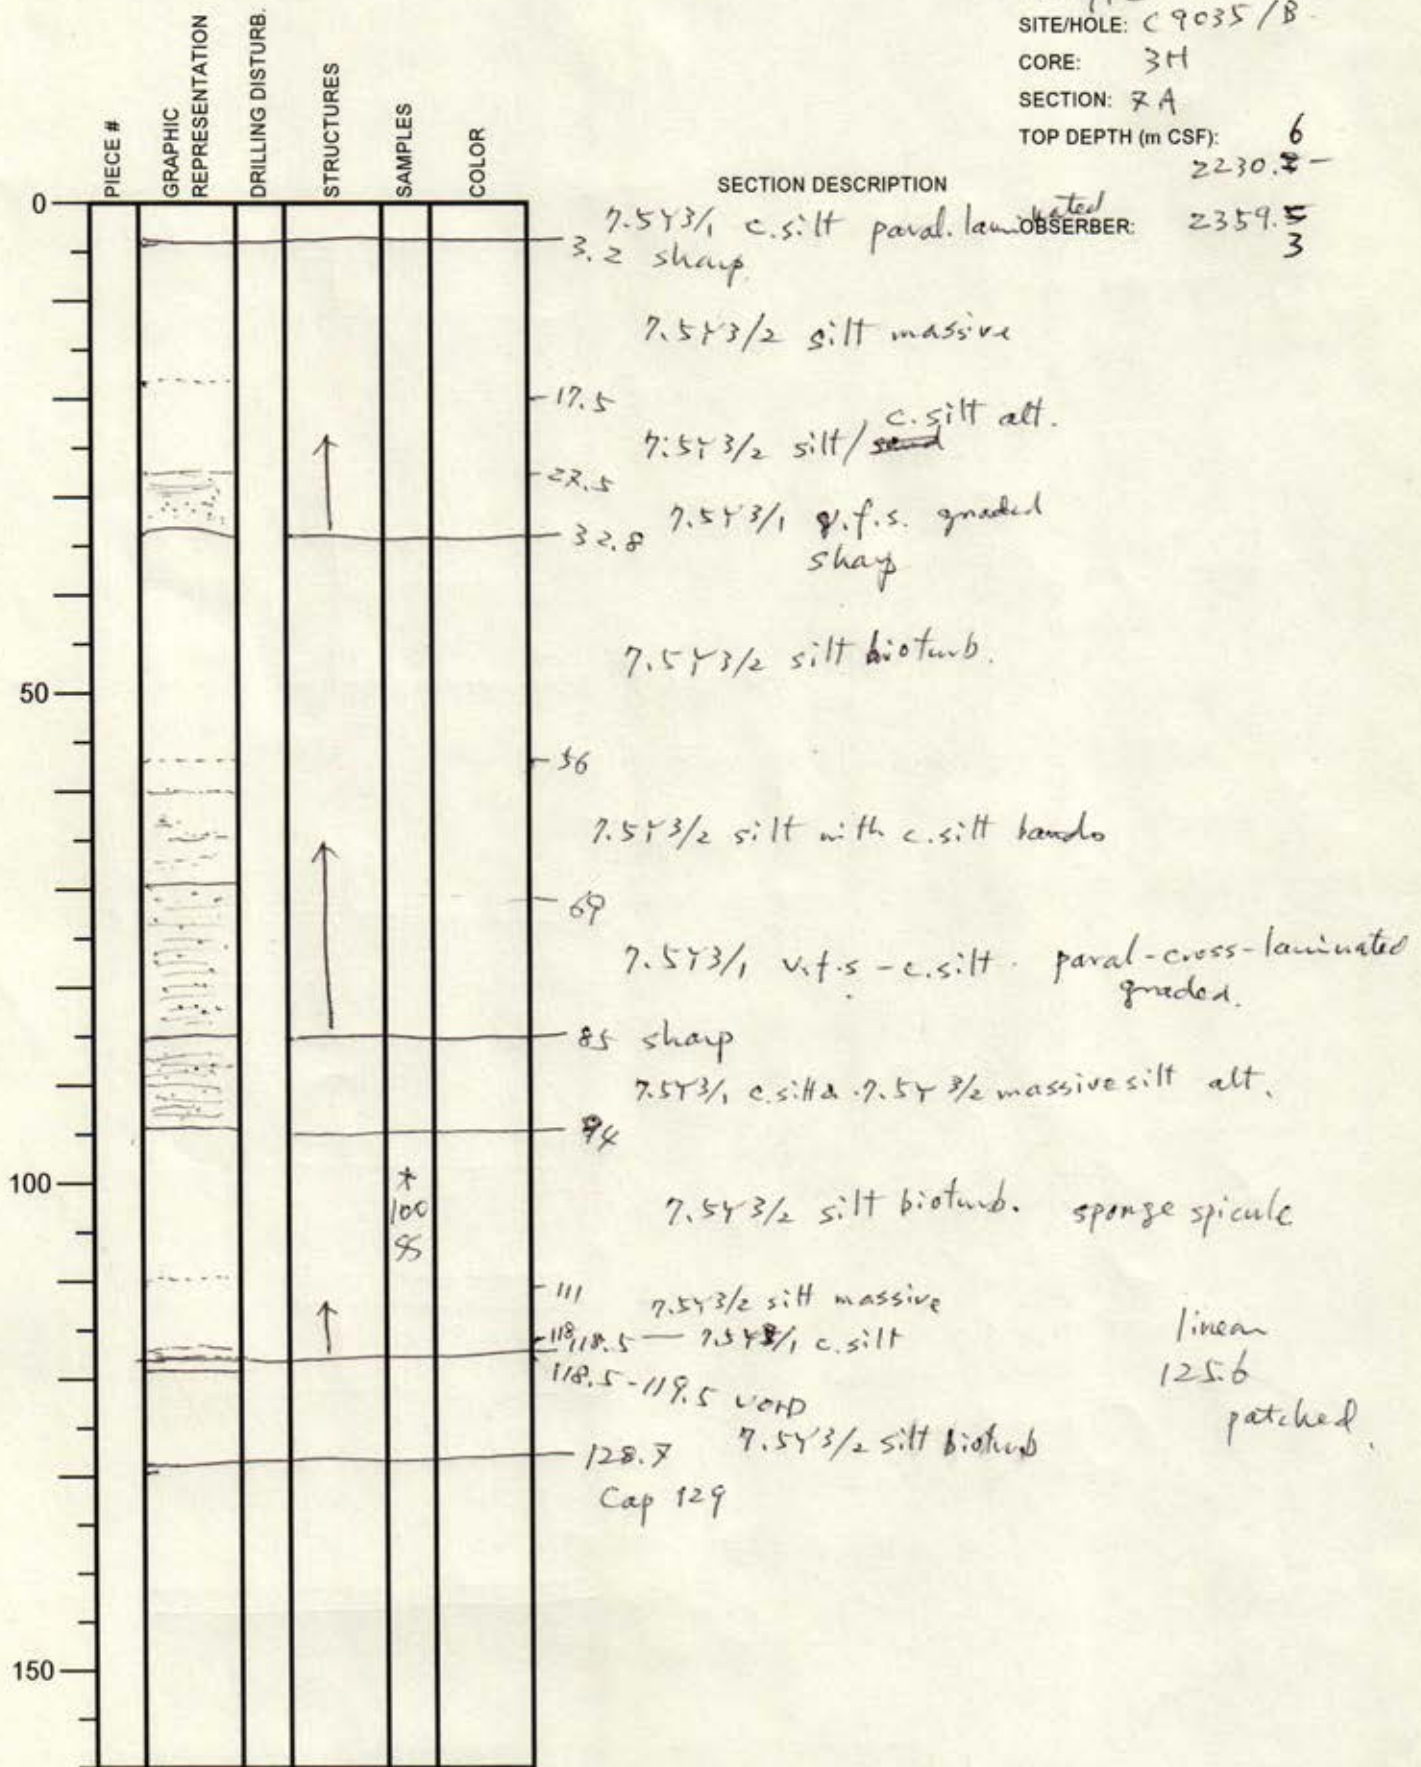 SITE/HOLE: C9035/B
CORE: 3H
SECTION: 7A
TOP DEPTH (m CSF): 6
2230.
OBSERBER: 2359.5
3
PIECE #
GRAPHIC REPRESENTATION
DRILLING DISTURB.
STRUCTURES
SAMPLES
COLOR
SECTION DESCRIPTION
0
7.5Y3/1 c.silt paral. laminated
3.2 sharp
7.5Y3/2 silt massive
17.5
7.5Y3/2 silt/sand c.silt alt.
27.5
7.5Y3/1 v.f.s. graded
32.8
sharp
7.5Y3/2 silt bioturb.
50
56
7.5Y3/2 silt with c.silt bands
69
7.5Y3/1 v.f.s - c.silt. paral-cross-laminated
graded.
85 sharp
7.5Y3/1 c.silt & 7.5Y3/2 massive silt alt.
94
100
*
100
SS
7.5Y3/2 silt bioturb. sponge spicule
111
7.5Y3/2 silt massive
118
118.5 — 7.5Y3/1 c.silt
118.5-119.5 VOID
linear
125.6
patched
7.5Y3/2 silt bioturb
128.7
Cap 129
150